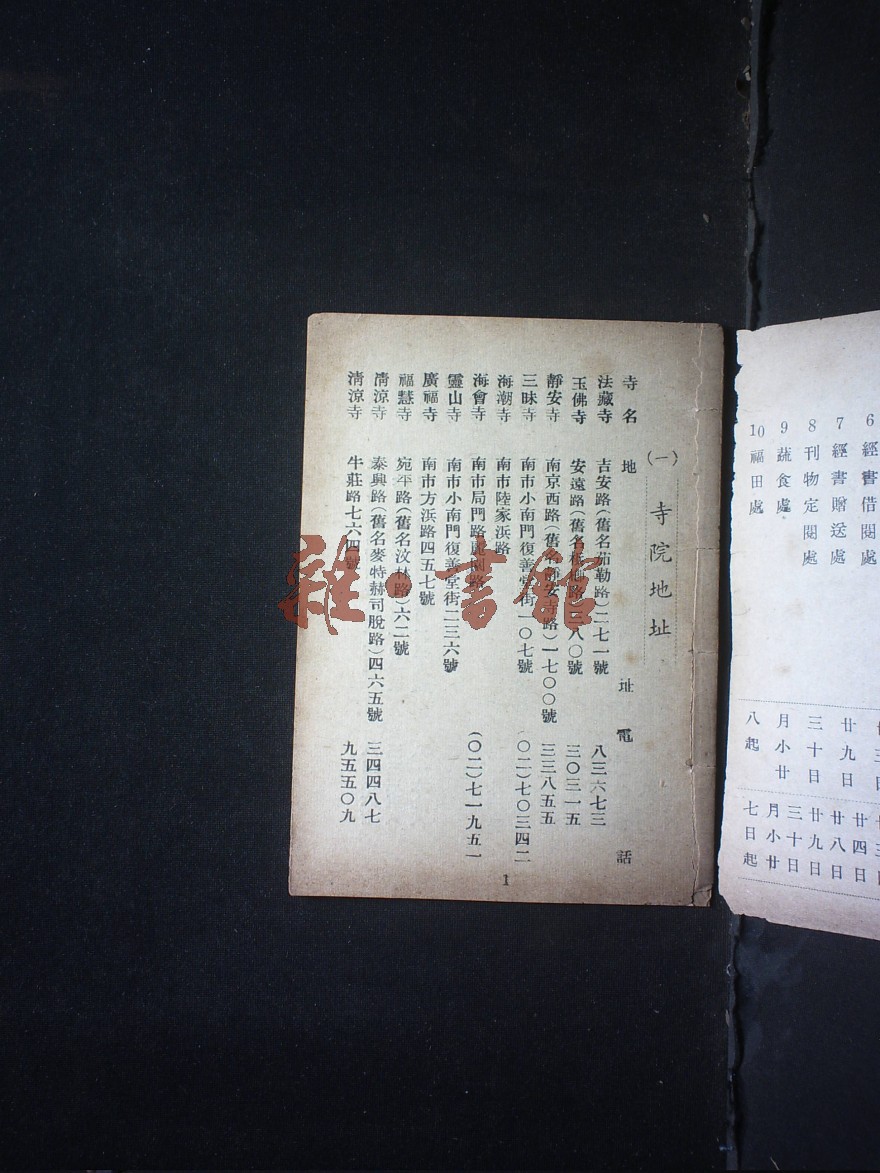 (一) 寺院地址
寺名 地址 電話
法藏寺 吉安路(舊名茄勒路)二七一號 八三六七三
玉佛寺 安遠路(舊名檳榔路)二八〇號 三〇三一五
靜安寺 南京西路(舊名靜安寺路)一七〇〇號 三三八五五
三昧寺 南市小南門復善堂街一〇七號 (〇二)七〇三四二
海潮寺 南市陸家浜路
海會寺 南市局門路麗園路 (〇二)七一九五一
靈山寺 南市小南門復善堂街二三六號
廣福寺 南市方浜路四五七號
福慧寺 宛平路(舊名汶林路)六二號
清涼寺 泰興路(舊名麥特赫司脫路)四六五號 三四四八七
清涼寺 牛莊路七六四號 九五五〇九
1
6 經書借閱處
7 經書贈送處
8 刊物定閱處
9 蔬食處
10 福田處
廿九日
三十日
月小廿
八起
廿四日
廿八日
廿九日
三十日
月小廿
七日起
雜·書館